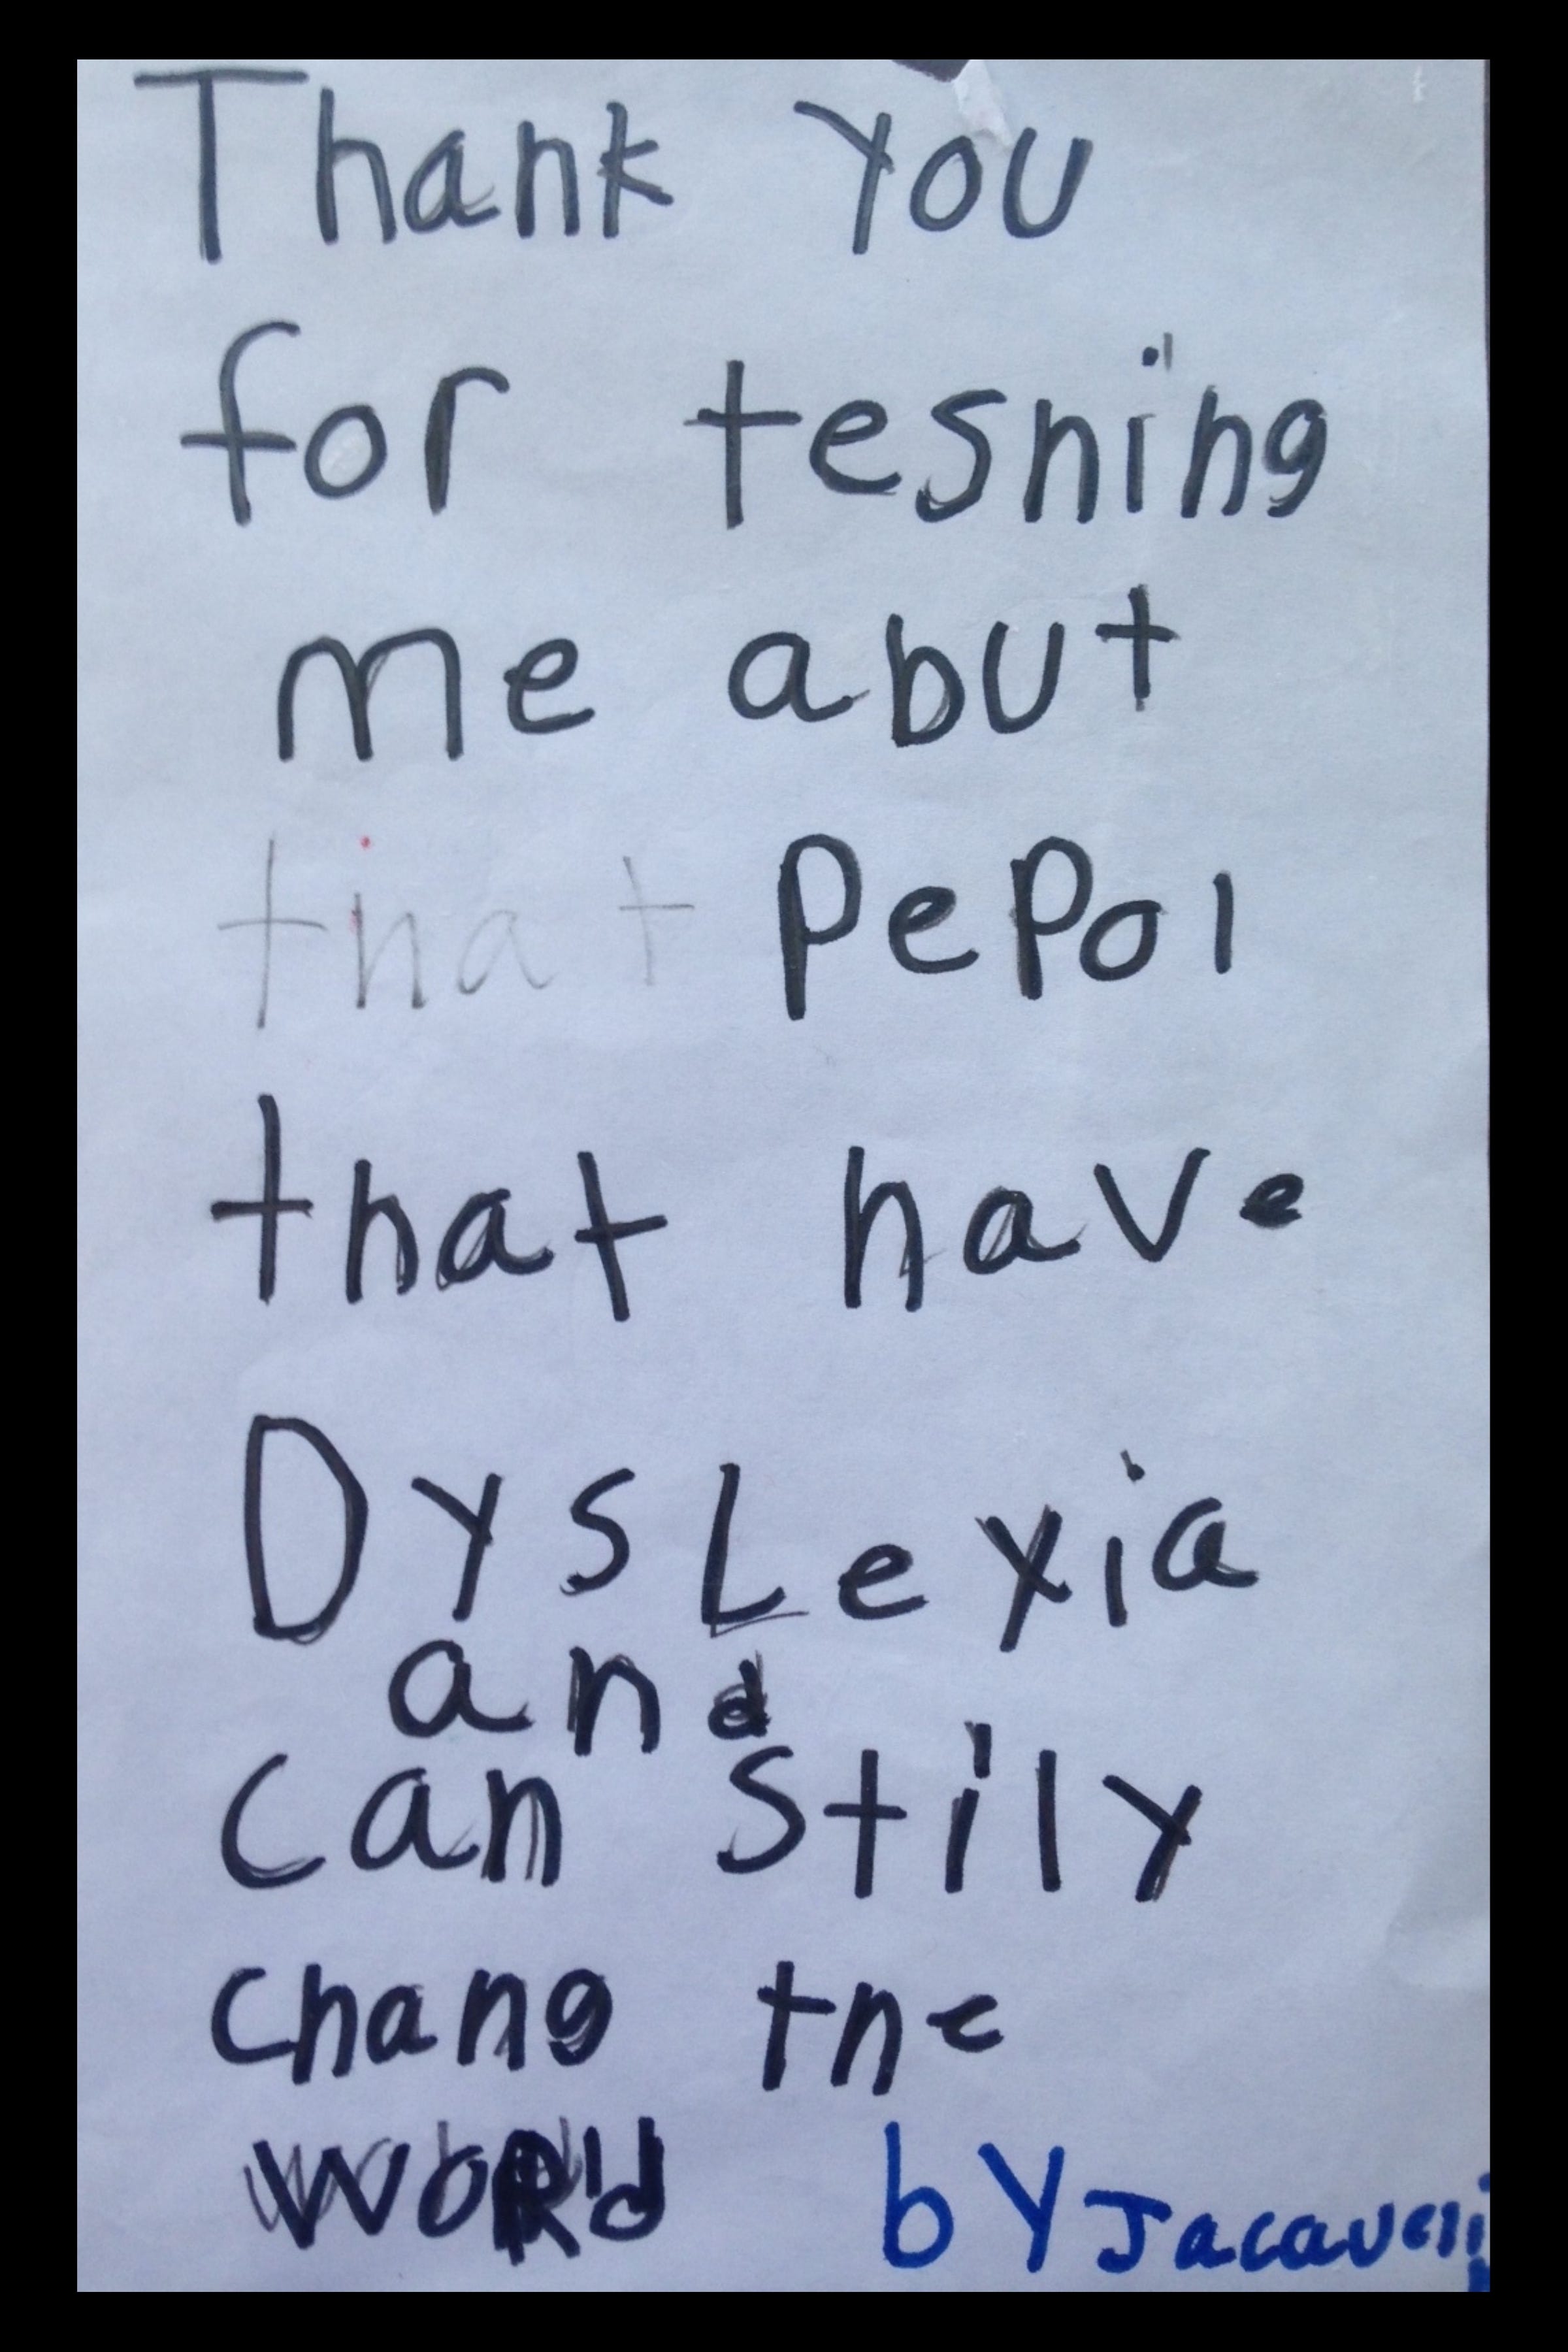 Thank you
for tesning
me abut
that Pepol
that have
DysLexia
and
can stily
chang the
WoRld by